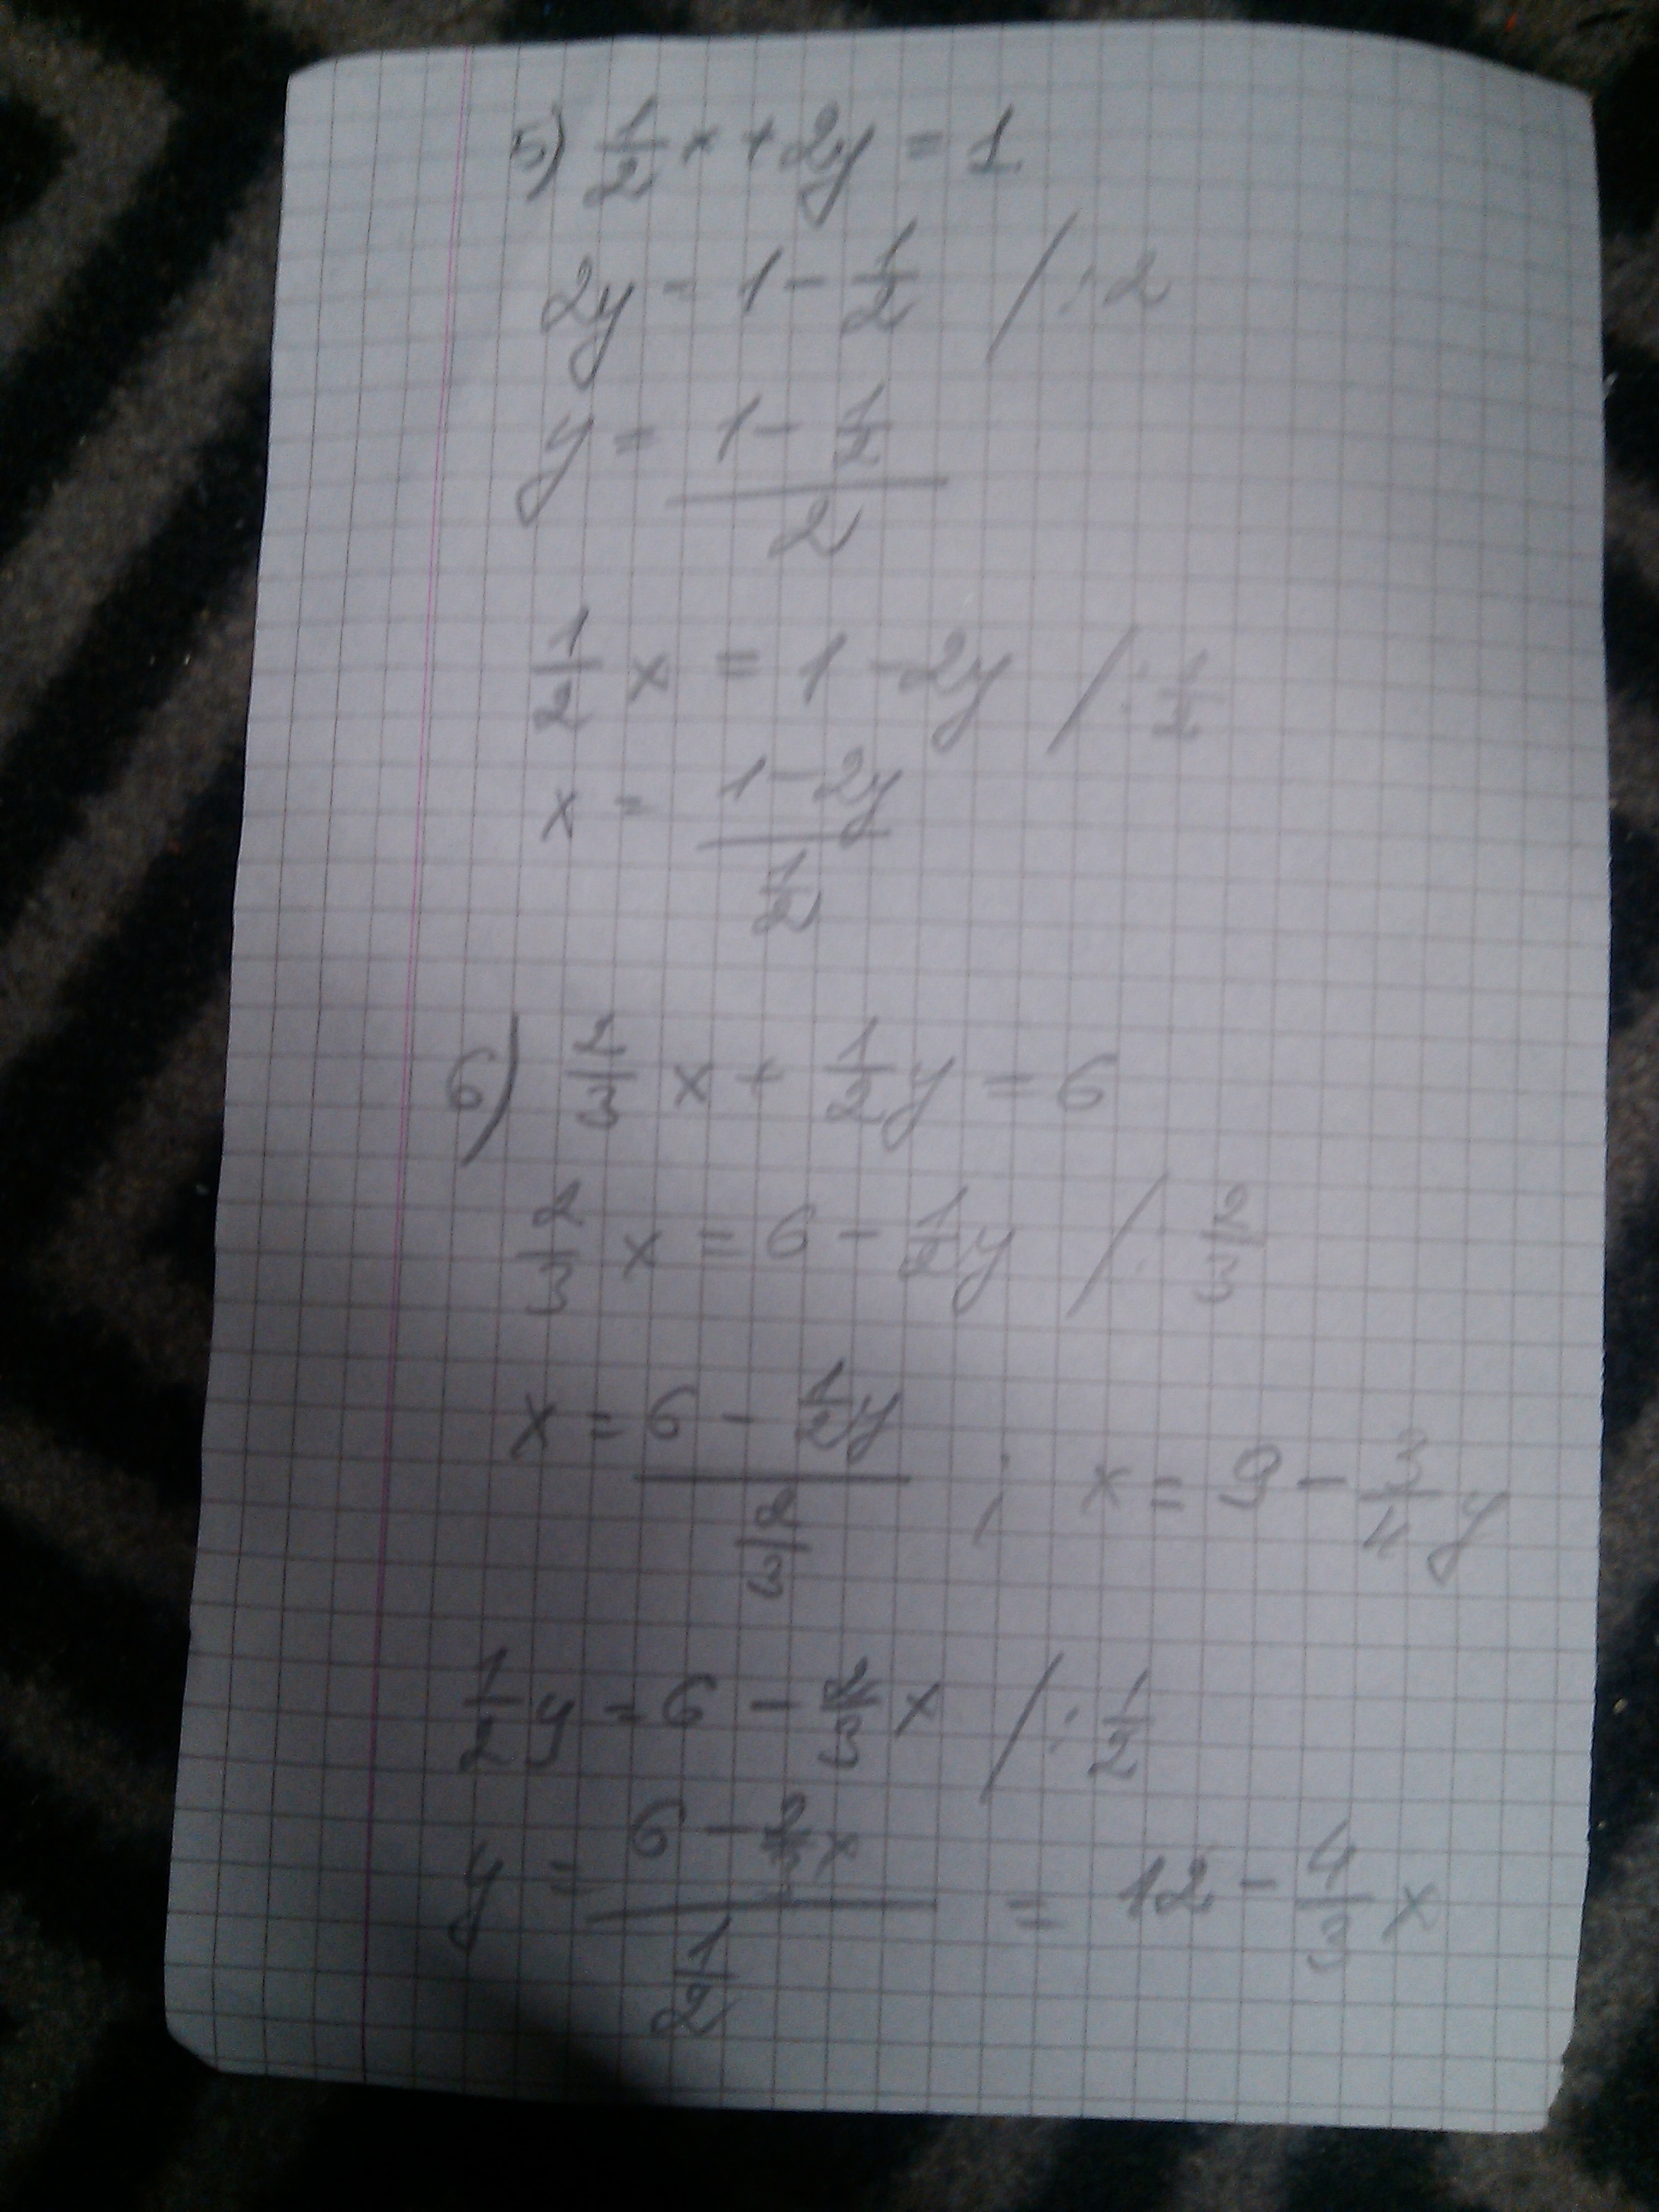 5) 1/2 x + 2y = 1
2y = 1 - 1/2 / : 2
y = (1 - 1/2)/2
1/2 x = 1 - 2y / : 1/2
x = (1 - 2y)/(1/2)
6) 2/3 x + 1/2 y = 6
2/3 x = 6 - 1/2 y / : 2/3
x = (6 - 1/2 y)/(2/3) ; x = 9 - 3/4 y
1/2 y = 6 - 2/3 x / : 1/2
y = (6 - 2/3 x)/(1/2) = 12 - 4/3 x